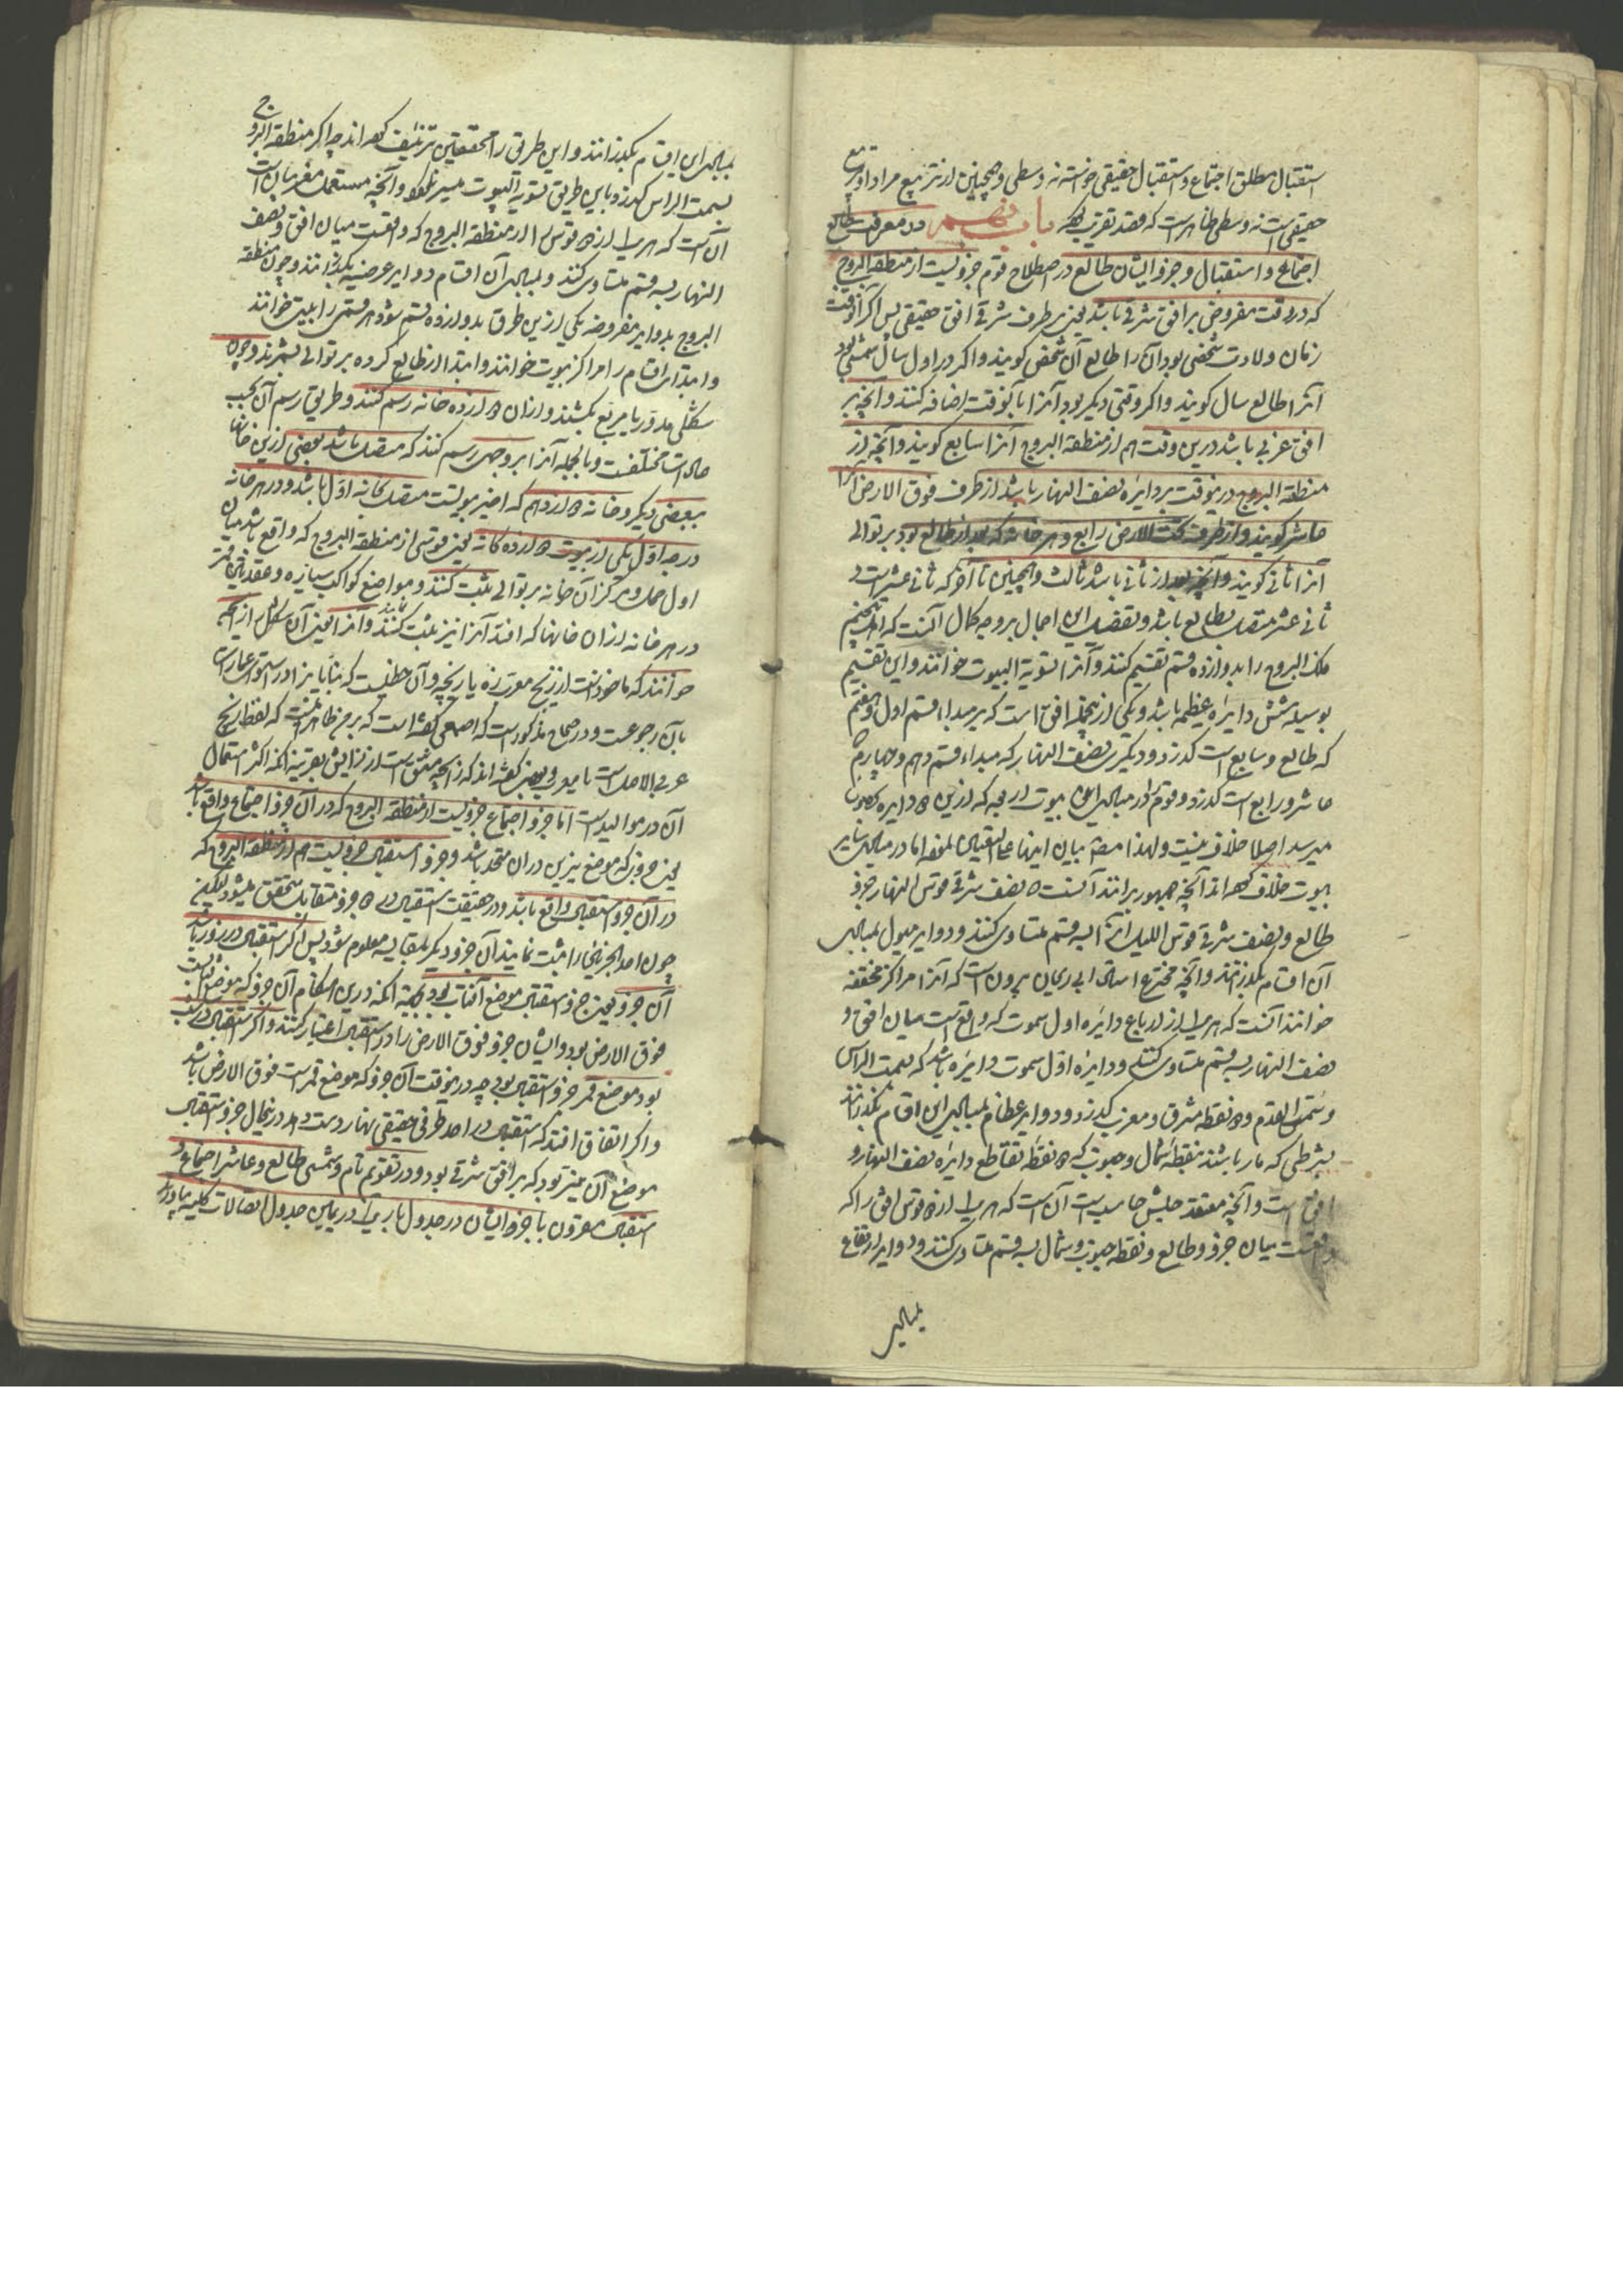 استقبال مطلق اجتماع و استقبال حقیقی خواسته نه وسطی و همچنین از تربیع مراد او تربیع
حقیقی است نه وسطی ظاهر است که قصد تقریب باب نهم در معرفت طالع
اجتماع و استقبال و جزو ایشان طالع در اصطلاح قوم جزویست از منطقة البروج
که در وقت مفروض بر افق شرقی باشد یعنی بر طرف شرقی افق حقیقی پس اگر آنوقت
زمان ولادت شخصی بود آن را طالع آن شخص گویند و اگر در اول سال شمسی بود
آنرا طالع سال گویند و اگر وقتی دیگر بود آنرا بآنوقت اضافه کنند و آنچه بر
افق غربی باشد درین وقت هم از منطقة البروج آنرا سابع گویند و آنچه از
منطقة البروج درینوقت بر دایره نصف النهار باشد از طرف فوق الارض آنرا
عاشر گویند و از طرف تحت الارض رابع و هر خانه که بعد از طالع بود بر توالی
آنرا ثانی گویند و آنچه بعد از ثانی باشد ثالث و همچنین تا آخر که ثانی عشر است و
ثانی عشر متصل بطالع باشد و تفصیل این اجمال بر وجه کمال آنست که اهل تنجیم
فلک البروج را بدوازده قسم تقسیم کنند و آنرا تسویة البیوت خوانند و این تقسیم
بوسیله شش دایره عظیمه باشد و یکی از آنجمله افق است که بر مبداء قسم اول و هفتم
که طالع و سابع است گذرد و دیگری نصف النهار که مبداء قسم دهم و چهارم
عاشر و رابع است گذرد و قوم را در مبادی این بیوت اربعه که ازین دو دایره بحصول
میرسد اصلا خلاف نیست و لهذا مصنف بیان اینها علی التعیین نموده اما در مبادی سایر
بیوت خلاف کرده‌اند آنچه جمهور برانند آنست که نصف شرقی قوس النهار جزو
طالع و نصف شرقی قوس اللیل آنرا بسه قسم متساوی کنند و دوایر میول بمبادی
آن اقسام بگذرانند و آنچه مخترع استاد ابی ریحان بیرونی است که آنرا مراکز محققه
خوانند آنست که هر یک از ارباع دایره اول سموت که واقع است میان افق و
نصف النهار بسه قسم متساوی کنند و دایره اول سموت دایره باشد که بسمت الراس
و سمت القدم و دو نقطه مشرق و مغرب گذرد و دوایر عظام بمبادی این اقسام بگذرانند
بشرطی که مار باشند بنقطه شمال و جنوب که دو نقطه تقاطع دایره نصف النهار و
افق است و آنچه معتقد حبش حاسب است آن است که هر یک از دو قوس افق را که
واقعست میان جزو طالع و نقطه جنوب و شمال بسه قسم متساوی کنند و دوایر ارتفاع
بمبادی
بمبادی این اقسام بگذرانند و این طریق را محققین تزییف کرده‌اند چه اگر منطقة البروج
بسمت الراس گذرد باین طریق تسویة البیوت میسر نگردد و آنچه مستعمل مغربیان است
آن است که هر یک از دو قوس را از منطقة البروج که واقعست میان افق و نصف
النهار بسه قسم متساوی کنند و بمبادی آن اقسام دوایر عرضیه بگذرانند و چون منطقة
البروج بدوایر مفروضه بیکی ازین طرق بدوازده قسم شود هر قسمی را بیت خوانند
و ابتدای اقسام را مراکز بیوت خوانند و ابتدا از طالع کرده بر توالی بشمرند و چون
شکلی مدور یا مربع بکشند و از آن دوازده خانه رسم کنند و طریق رسم آن بحسب
عادات مختلفست و بالجمله آنرا بر وجهی رسم کنند که متصل باشد بعضی ازین خانها
ببعضی دیگر و خانه دوازدهم که اخیر بیوتست متصل بخانه اول باشد و در هر خانه
درجه اول یکی از بیوت دوازده‌گانه یعنی قوسی از منطقة البروج که واقع باشد میان
اول حمل و مرکز آن خانه بر توالی ثبت کنند و مواضع کواکب سیاره و عقدتین قمر
در هر خانه از آن خانها که افتد آنرا نیز ثبت کنند نمایند و آنرا یعنی آن شکل را زایجه
خوانند که ماخوذ است از زیج معرب زه یا زیگچه و آن خطیست که بنایان از او استوای عمارت
بآن رجوعست و در صحاح مذکور است که اصمعی گفته است که بر من ظاهر نیست که لفظ زیج
عربی الاصل است یا معرب و بعضی گفته‌اند که زایچه مشتق است از زایش بقرینه آنکه اکثر استعمال
آن در موالید است اما جزو اجتماع جزویست از منطقة البروج که در آن جزو اجتماع واقع باشد
یعنی جزوی که موضع نیرین در آن متحد باشد و جزو استقبال جزویست هم از منطقة البروج که
در آن جزو استقبال واقع باشد و در حقیقت استقبال در دو جزو متقابل متحقق میشود لیکن
چون احد الجزئین را ثبت نمایند آن جزو دیگر بمقایسه معلوم شود پس اگر استقبال در روز باشد
آن جزو یعنی جزو استقبال موضع آفتاب بود بجهة آنکه درین هنگام آن جزو که موضع اوست
فوق الارض بود و ایشان جزو فوق الارض را در استقبال اعتبار کنند و اگر استقبال در شب
بود موضع قمر جزو استقبال بود چه درینوقت آن جزو که موضع قمر است فوق الارض باشد
و اگر اتفاق افتد که استقبال در احد طرفی حقیقی نهار دست دهد درینحال جزو استقبال
موضع آن نیر بود که بر افق شرقی بود و در تقویم تام و شمسی طالع و عاشر اجتماع و
استقبال مقرون با جزو ایشان در جدول باریک در یمین جدول اتصالات کلیه بیاورند